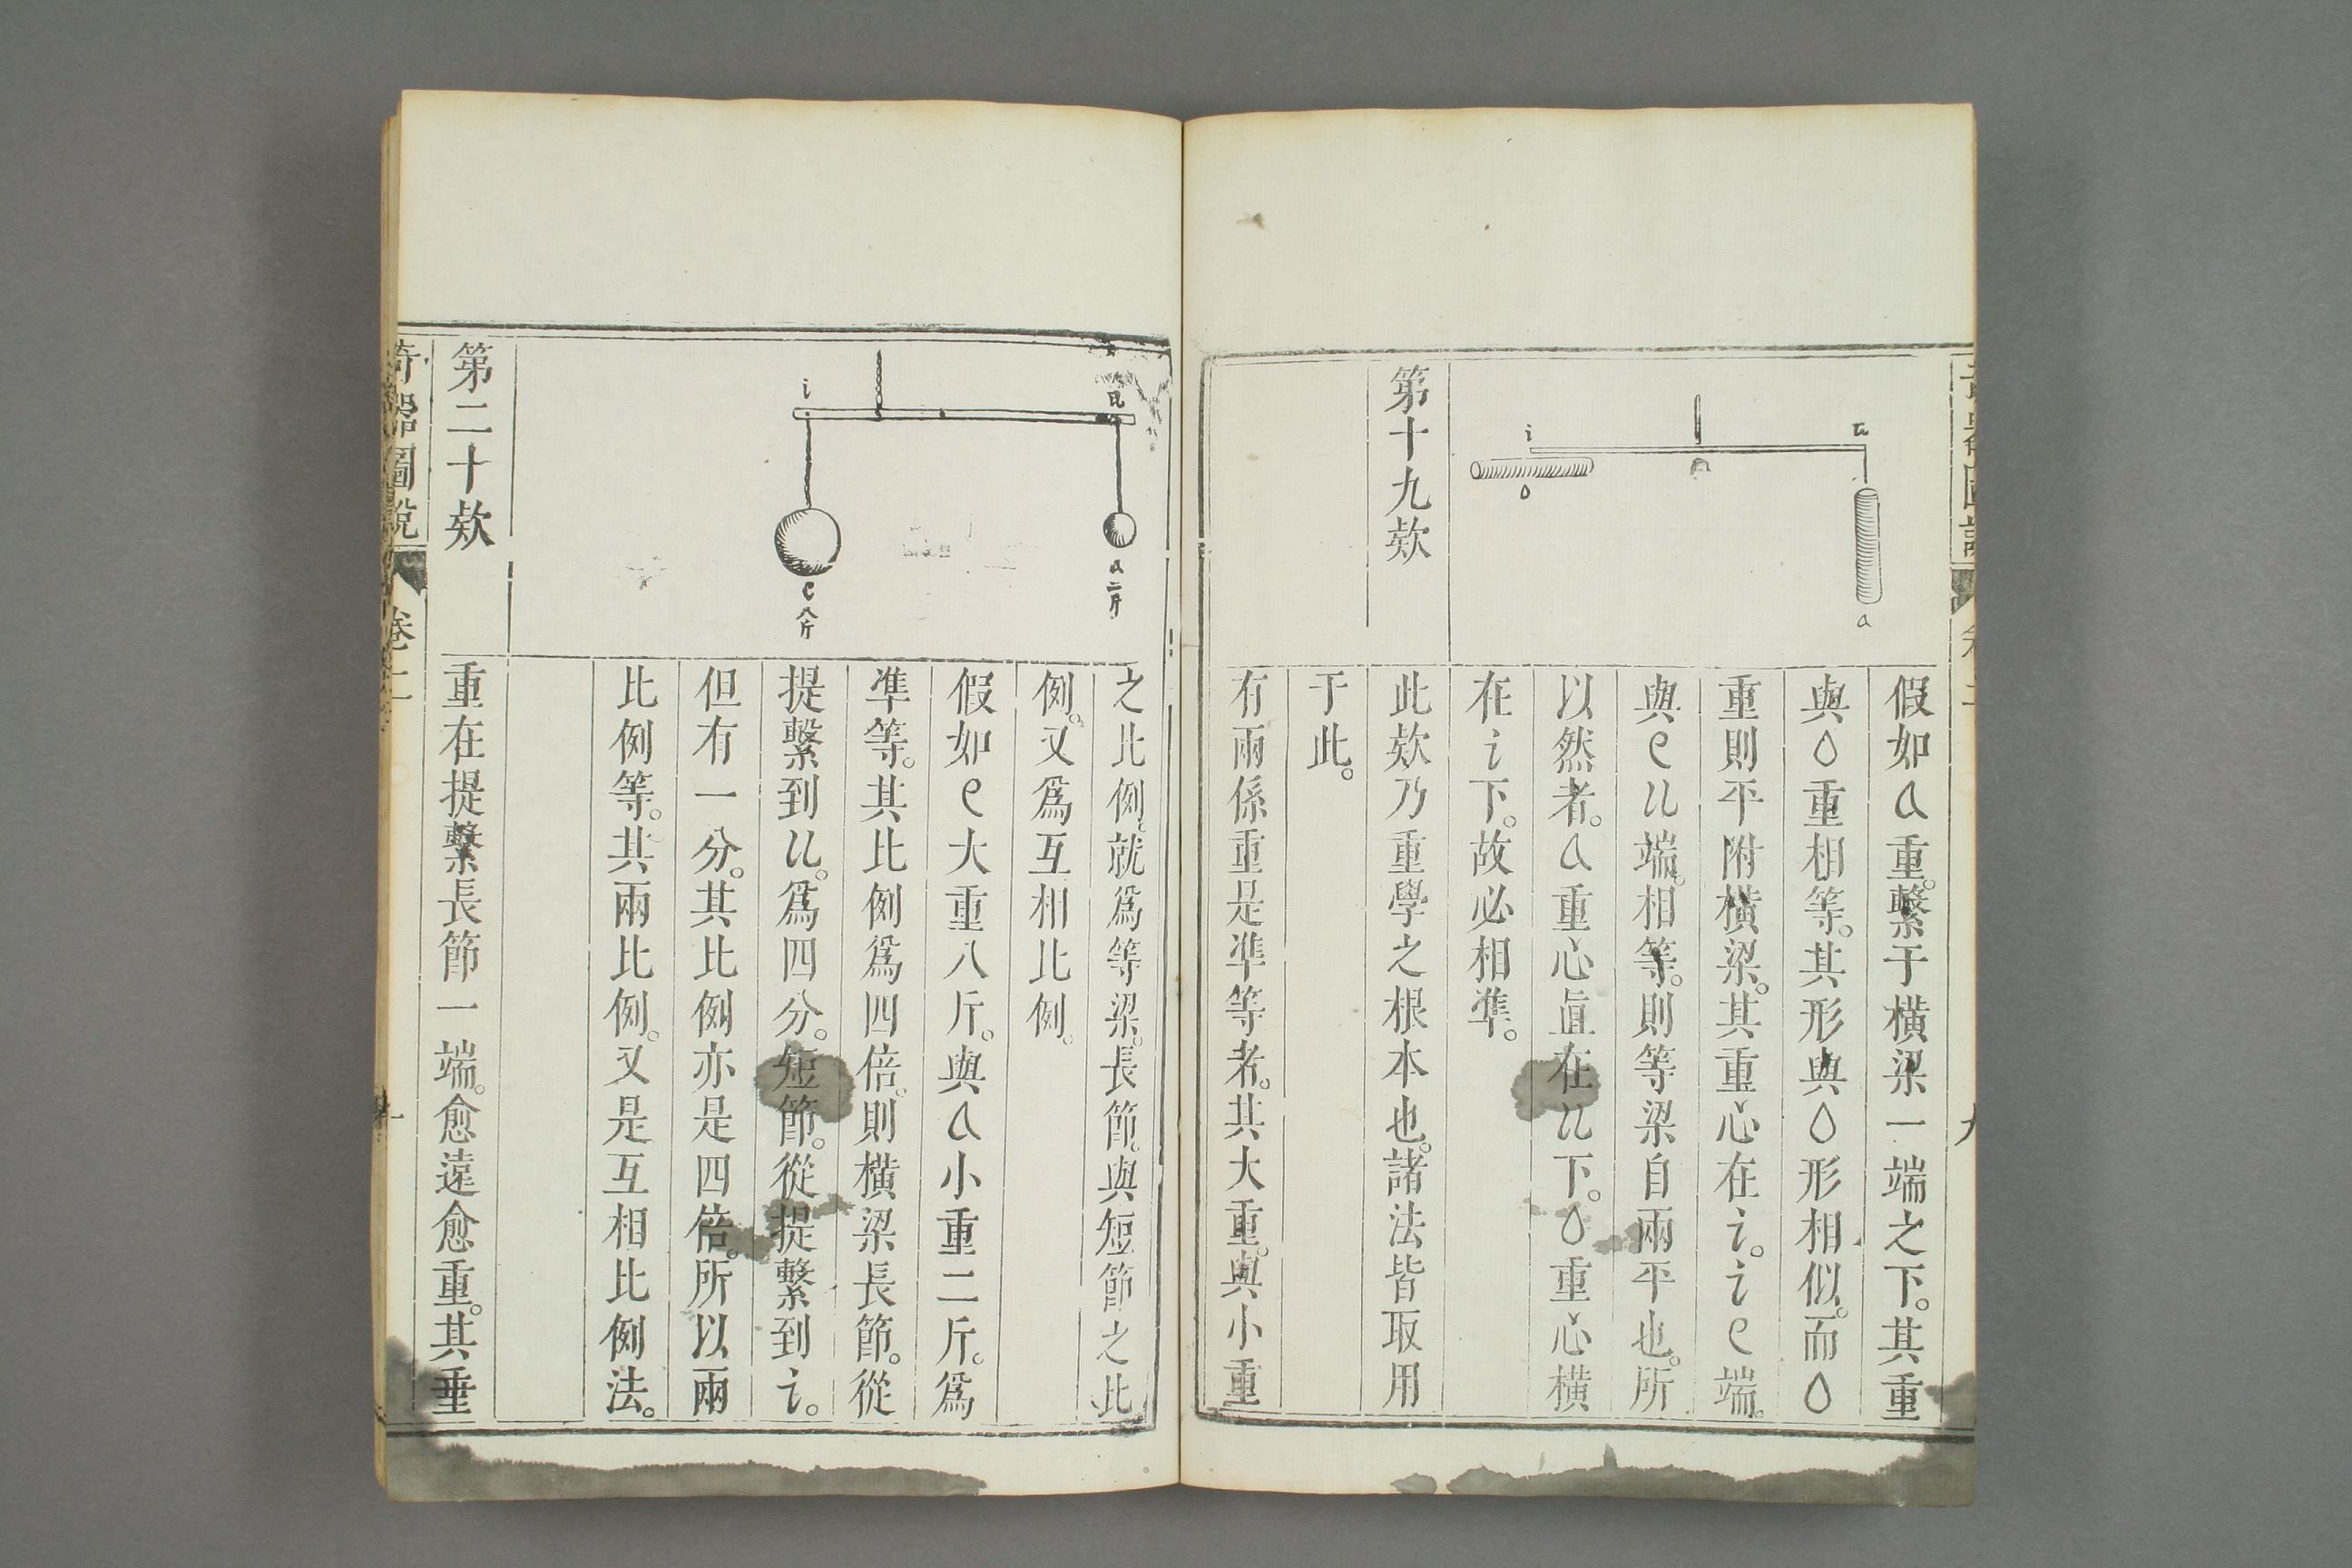 假如a重。繫于橫梁一端之下。其重
與o重相等。其形與o形相似。而o
重則平附橫梁。其重心在i。i e端。
與e u端。相等。則等梁自兩平也。所
以然者。a重心直在u下。o重心橫
在i下。故必相準。
i
o
u
a
第十九款
此款乃重學之根本也。諸法皆取用
于此。
有兩係重是準等者。其大重。與小重
九
之比例。就爲等梁。長節。與短節之比
例。又爲互相比例。
假如e大重八斤。與a小重二斤。爲
準等。其比例爲四倍。則橫梁長節。從
提繫到u。爲四分。短節。從提繫到i。
但有一分。其比例亦是四倍。所以兩
比例等。其兩比例。又是互相比例法。
i
u
e
八斤
a
二斤
第二十款
重在提繫長節一端。愈遠愈重。其垂
奇器圖說
卷二